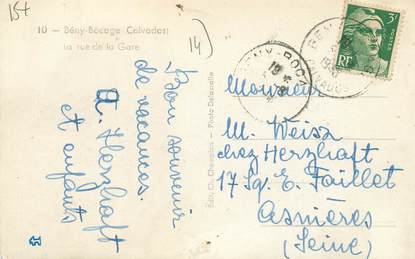 15+
10 - Bény-Bocage (Calvados)
La rue de la Gare
14)
Bon souvenir
de vacances.
A. Herzhaft
et enfants
Edit. Ch. Photo
BENY-BOCAGE
CALVADOS
3F
RF
POSTES
Monsieur
M. Weisz
chez Herzhaft
17 Sq. E. Faillet
Asnières
(Seine)